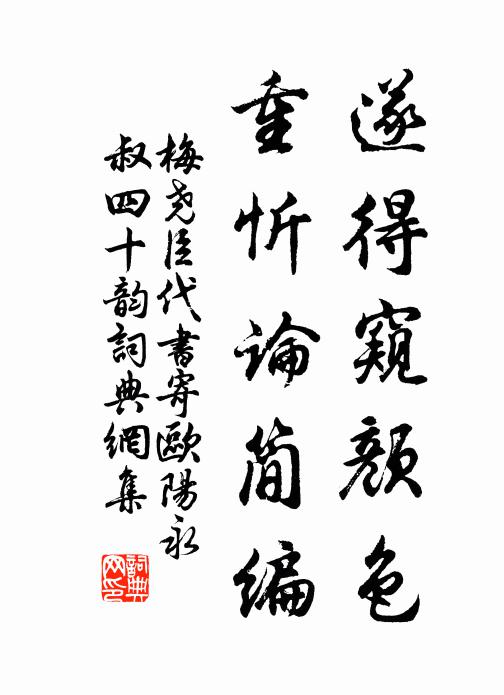 遂得窺顔色
重忻論簡編
梅堯臣代書寄歐陽永
叔四十韵詞典網集
詞典
网印